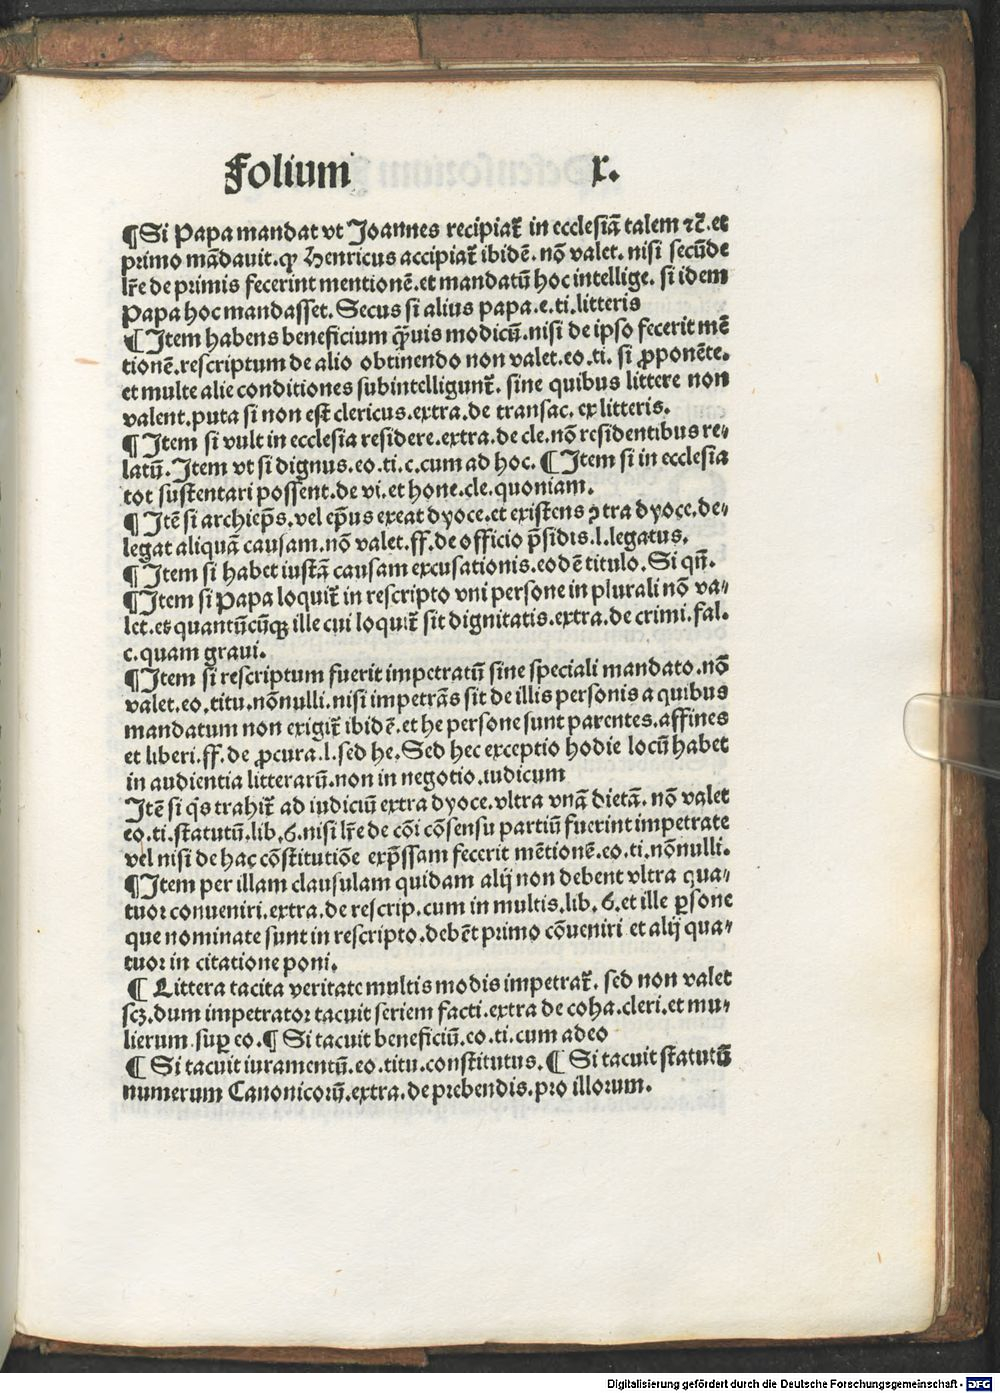 Folium x.
¶ Si Papa mandat vt Joannes recipiat᷑ in ecclesiā talem ⁊c̄. et
primo mādauit. ꝙ Henricus accipiat᷑ ibidē. nō valet. nisi secūde
lr̄e de primis fecerint mentionē. et mandatū hoc intellige. si idem
Papa hoc mandasset. Secus si alius papa. e. ti. litteris
¶ Item habens beneficium q̄uis modicū. nisi de ipso fecerit mē
tionē. rescriptum de alio obtinendo non valet. eo. ti. si ꝓponēte.
et multe alie conditiones subintelligunt᷑. sine quibus littere non
valent. puta si non est clericus. extra. de transac. ex litteris.
¶ Item si vult in ecclesia residere. extra. de cle. nō residentibus re-
latū. Item vt si dignus. eo. ti. c. cum ad hoc. ¶ Item si in ecclesia
tot sustentari possent. de vi. et hone. cle. quoniam.
¶ Itē si archiep̄s. vel ep̄us exeat dyoce. et existens ꝯtra dyoce. de-
legat aliquā causam. nō valet. ff. de officio p̄sidis. l. legatus.
¶ Item si habet iustā causam excusationis. eodē titulo. Si qn̄.
¶ Item si Papa loquit᷑ in rescripto vni persone in plurali nō va-
let. et quantūcūqꝫ ille cui loquit᷑ sit dignitatis. extra. de crimi. fal.
c. quam graui.
¶ Item si rescriptum fuerit impetratū sine speciali mandato. nō
valet. eo. titu. nōnulli. nisi impetrās sit de illis personis a quibus
mandatum non exigit᷑ ibidē. et he persone sunt parentes. affines
et liberi. ff. de ꝓcura. l. sed he. Sed hec exceptio hodie locū habet
in audientia litterarū. non in negotio. iudicum
Itē si q̄s trahit᷑ ad iudiciū extra dyoce. vltra vnā dietā. nō valet
eo. ti. statutū. lib. 6. nisi lr̄e de cōi cōsensu partiū fuerint impetrate
vel nisi de hac cōstitutiōe exp̄ssam fecerit mētionē. eo. ti. nōnulli.
¶ Item per illam clausulam quidam alij non debent vltra qua-
tuor conueniri. extra. de rescrip. cum in multis. lib. 6. et ille ꝑsone
que nominate sunt in rescripto. debēt primo cōueniri et alij qua-
tuor in citatione poni.
¶ Littera tacita veritate multis modis impetrat᷑. sed non valet
scꝫ. dum impetrator tacuit seriem facti. extra de coha. cleri. et mu-
lierum suꝑ eo. ¶ Si tacuit beneficiū. eo. ti. cum adeo
¶ Si tacuit iuramentū. eo. titu. constitutus. ¶ Si tacuit statutū
numerum Canonicorū. extra. de prebendis. pro illorum.
Digitalisierung gefördert durch die Deutsche Forschungsgemeinschaft - DFG